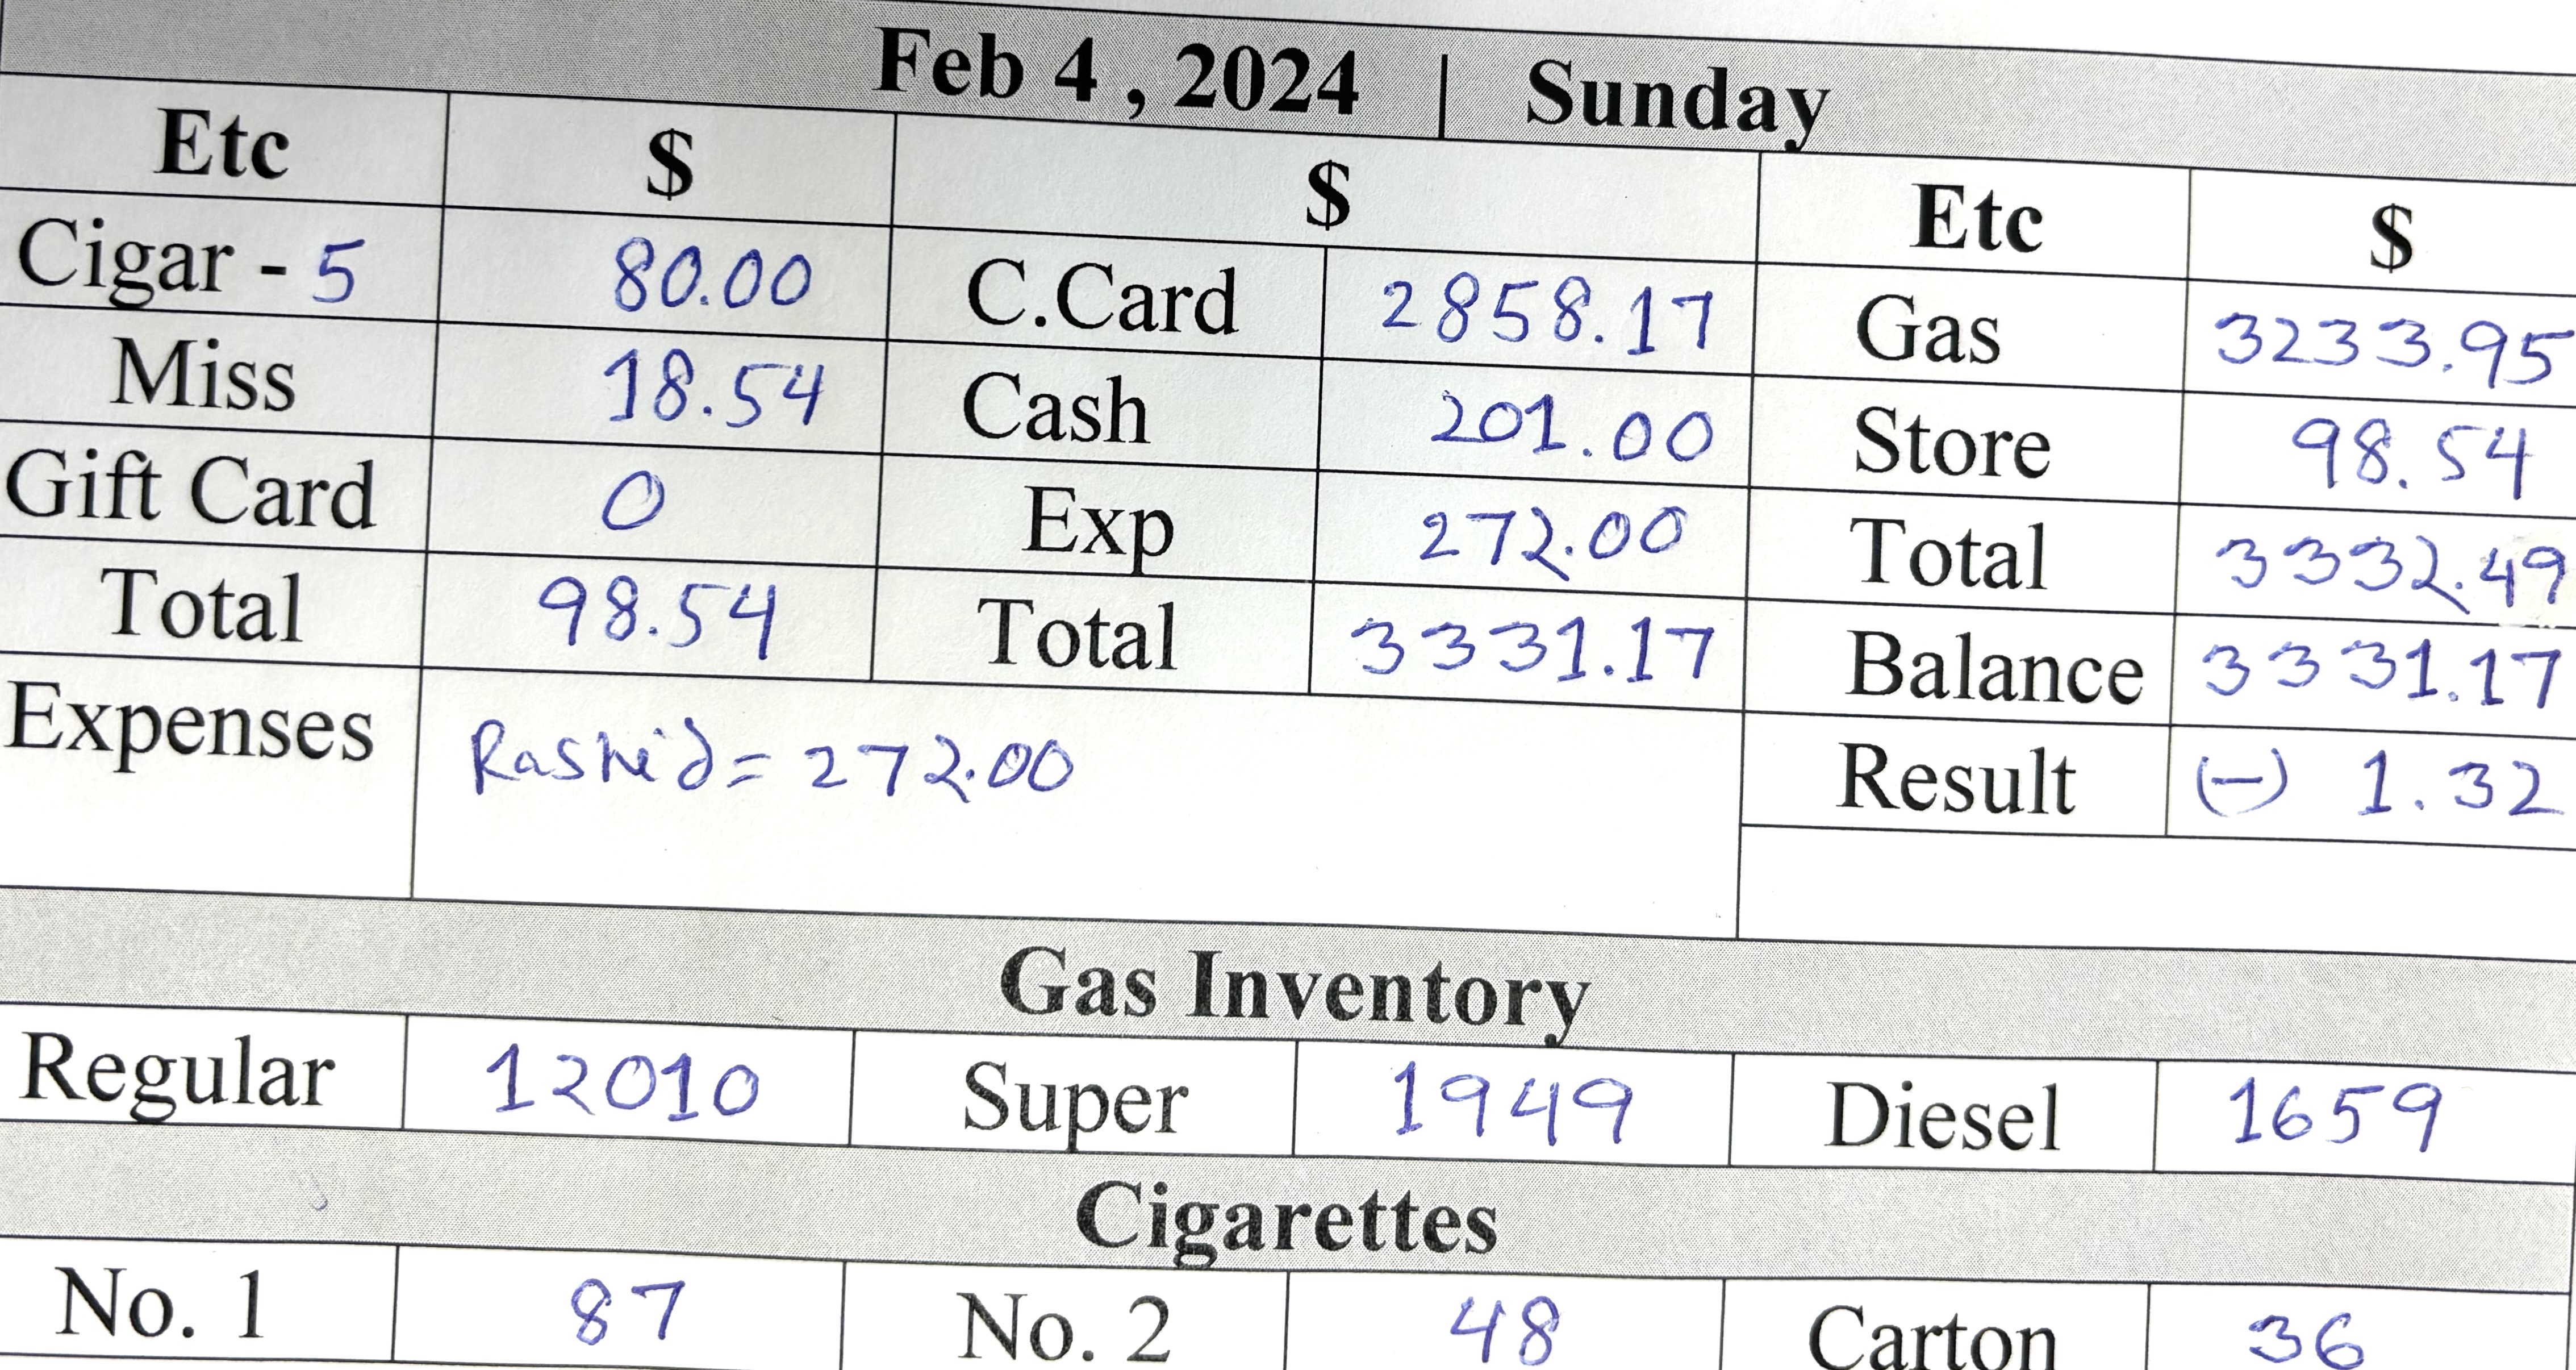 Feb 4 , 2024 | Sunday
Etc $ $ Etc $
Cigar - 5 80.00 C.Card 2858.17 Gas 3233.95
Miss 18.54 Cash 201.00 Store 98.54
Gift Card 0 Exp 272.00 Total 3332.49
Total 98.54 Total 3331.17 Balance 3331.17
Expenses Rashid = 272.00 Result (-) 1.32
Gas Inventory
Regular 12010 Super 1949 Diesel 1659
Cigarettes
No. 1 87 No. 2 48 Carton 36